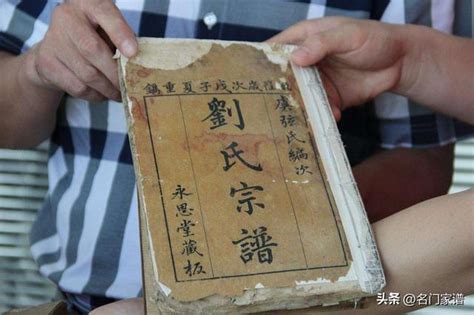 隆歲次戊子夏重鐫
虞弦氏編次
劉氏宗譜
永思堂藏板
头条 @名门家谱